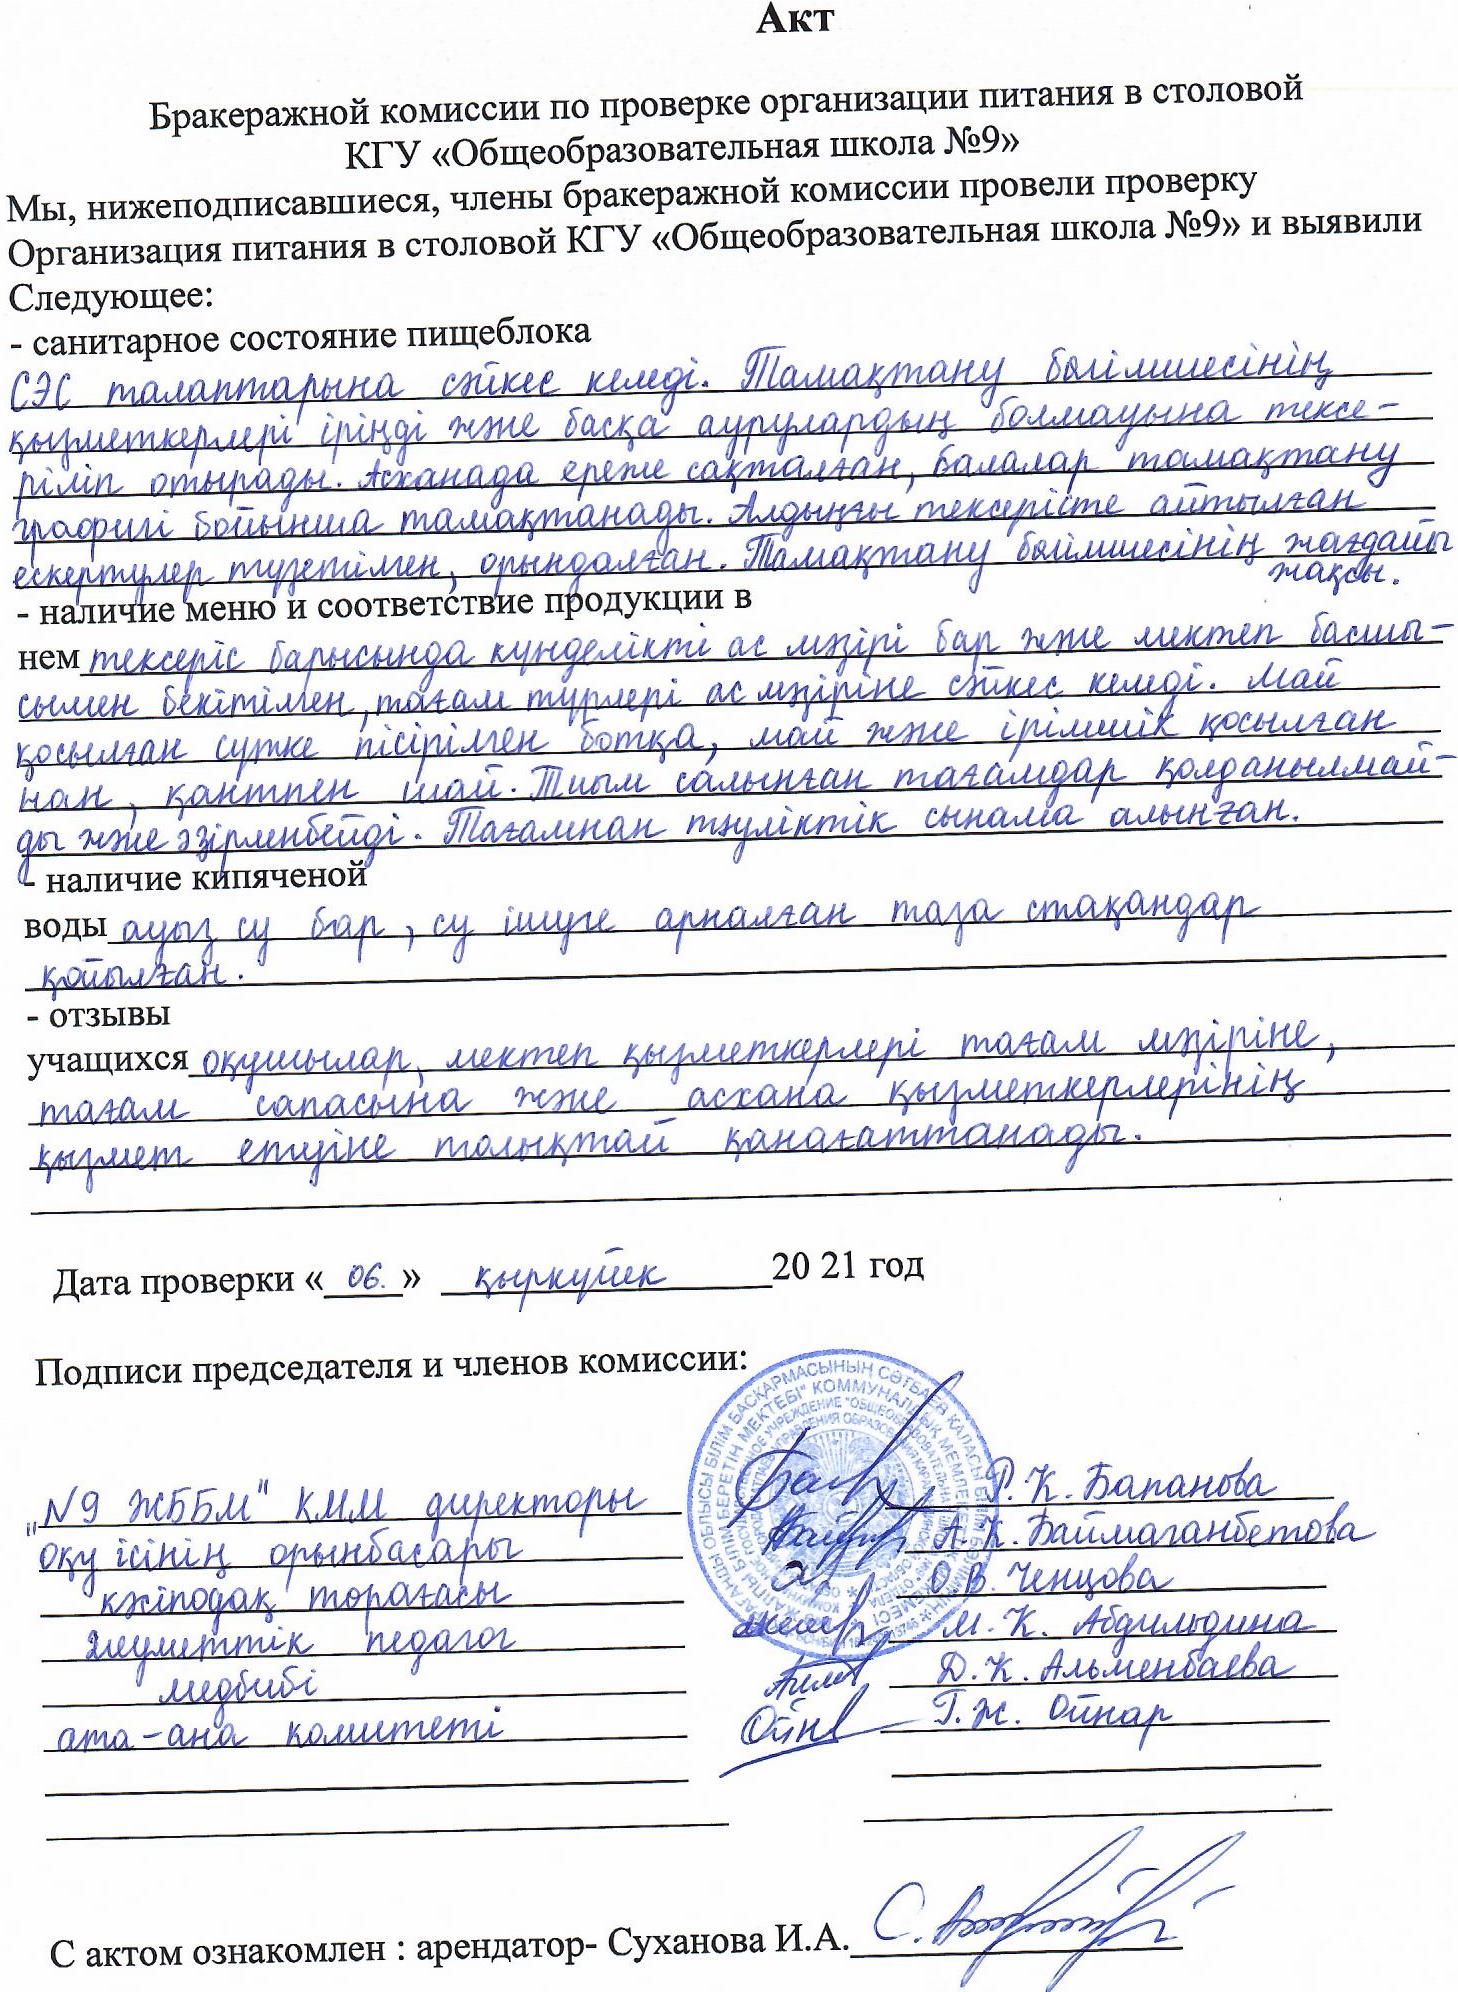 Акт
Бракеражной комиссии по проверке организации питания в столовой
КГУ «Общеобразовательная школа №9»
Мы, нижеподписавшиеся, члены бракеражной комиссии провели проверку
Организация питания в столовой КГУ «Общеобразовательная школа №9» и выявили
Следующее:
- санитарное состояние пищеблока
СЭС талаптарына сәйкес келеді. Тамақтану бөлімшесінің
қызметкерлері іріңді және басқа аурулардың болмауына тексе-
ріліп отырады. Асханада ереже сақталған, балалар тамақтану
графигі бойынша тамақтанады. Алдыңғы тексерісте айтылған
ескертулер түзетілген, орындалған. Тамақтану бөлімшесінің жағдайы
жақсы.
- наличие меню и соответствие продукции в
нем тексеріс барысында күнделікті ас мәзірі бар және мектеп басшы-
сымен бекітілген, тағам түрлері ас мәзіріне сәйкес келеді. Май
қосылған сүтке пісірілген ботқа, май және ірімшік қосылған
нан, қантпен шай. Тиым салынған тағамдар қолданылмай-
ды және әзірленбейді. Тағамнан тәуліктік сынама алынған.
- наличие кипяченой
воды ауыз су бар, су ішуге арналған таза стақандар
қойылған.
- отзывы
учащихся оқушылар, мектеп қызметкерлері тағам мәзіріне,
тағам сапасына және асхана қызметкерлерінің
қызмет етуіне толықтай қанағаттанады.
Дата проверки « 06. » қыркүйек 20 21 год
Подписи председателя и членов комиссии:
"N9 ЖББМ" КММ директоры Р.К. Бапанова
оқу ісінің орынбасары А.К. Баймаганбетова
кәсіподақ төрағасы О.В. Ченцова
әлеуметтік педагог М.К. Абдильдина
медбибі Д.К. Альменбаева
ата-ана комитеті Г.Ж. Ойнар
С актом ознакомлен : арендатор- Суханова И.А.